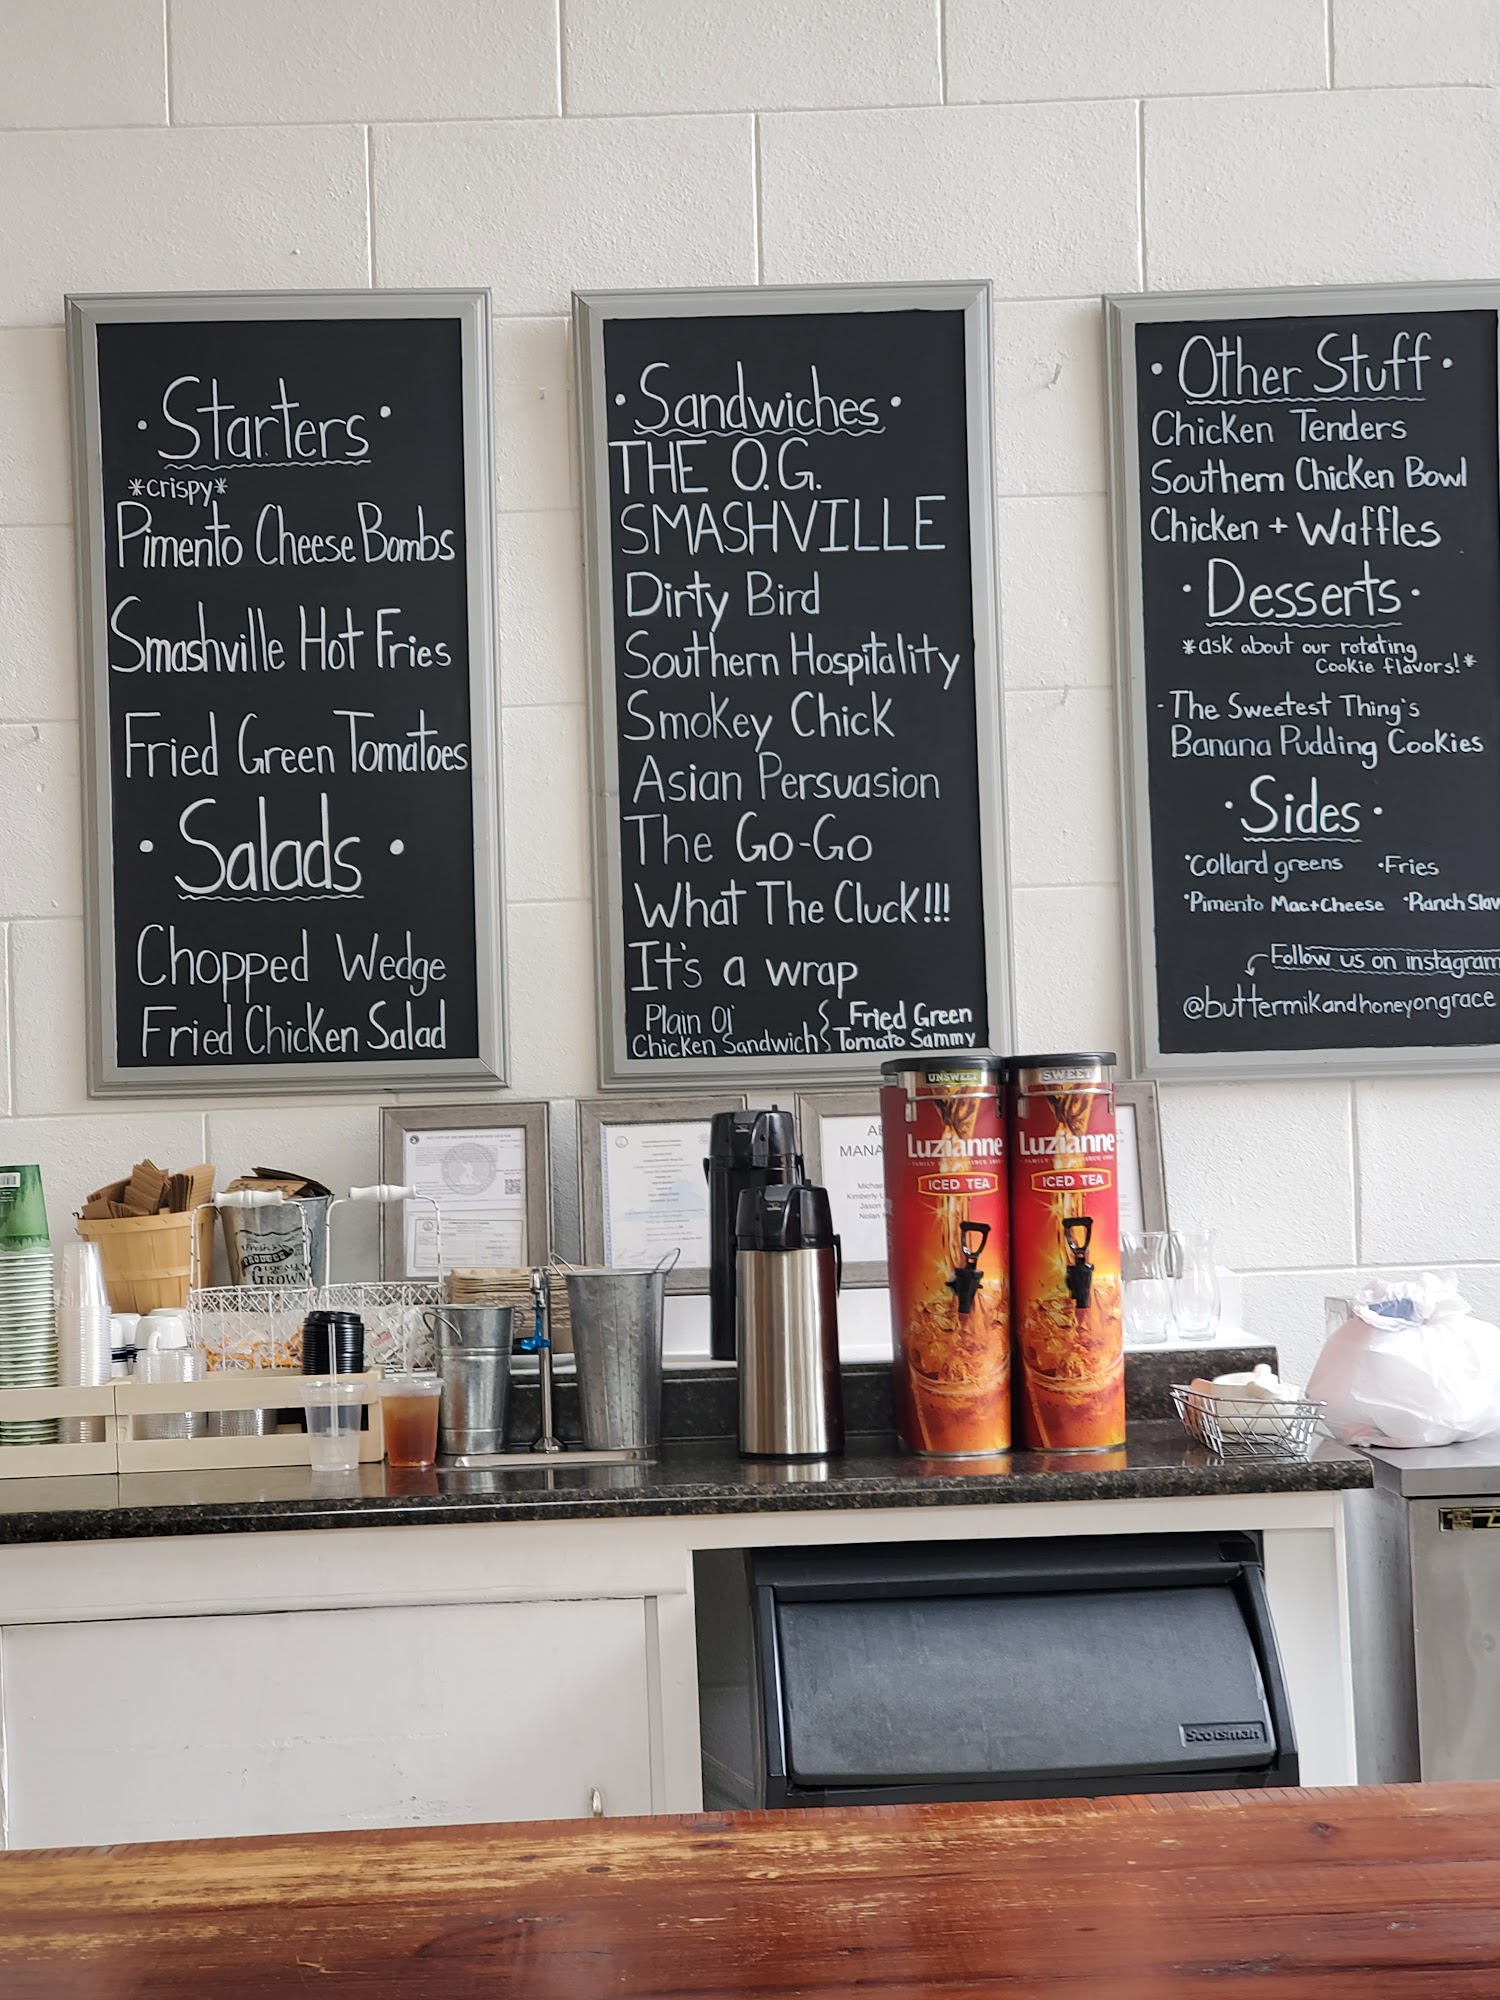 • Starters •
*crispy*
Pimento Cheese Bombs
Smashville Hot Fries
Fried Green Tomatoes
• Salads •
Chopped Wedge
Fried Chicken Salad
• Sandwiches •
THE O.G.
SMASHVILLE
Dirty Bird
Southern Hospitality
Smokey Chick
Asian Persuasion
The Go-Go
What The Cluck!!!
It's a wrap
Plain Ol'
Chicken Sandwich
Fried Green
Tomato Sammy
• Other Stuff •
Chicken Tenders
Southern Chicken Bowl
Chicken + Waffles
• Desserts •
*ask about our rotating
Cookie flavors!*
- The Sweetest Thing's
Banana Pudding Cookies
• Sides •
•Collard greens •Fries
•Pimento Mac+Cheese •Ranch Slaw
Follow us on instagram
@buttermikandhoneyongrace
UNSWEET
Luzianne
ICED TEA
SWEET
Luzianne
ICED TEA
MANA
Michae
Kimberly L
Jason
Nolan
Fresh
PRODUCE
GROWN
Scotsman